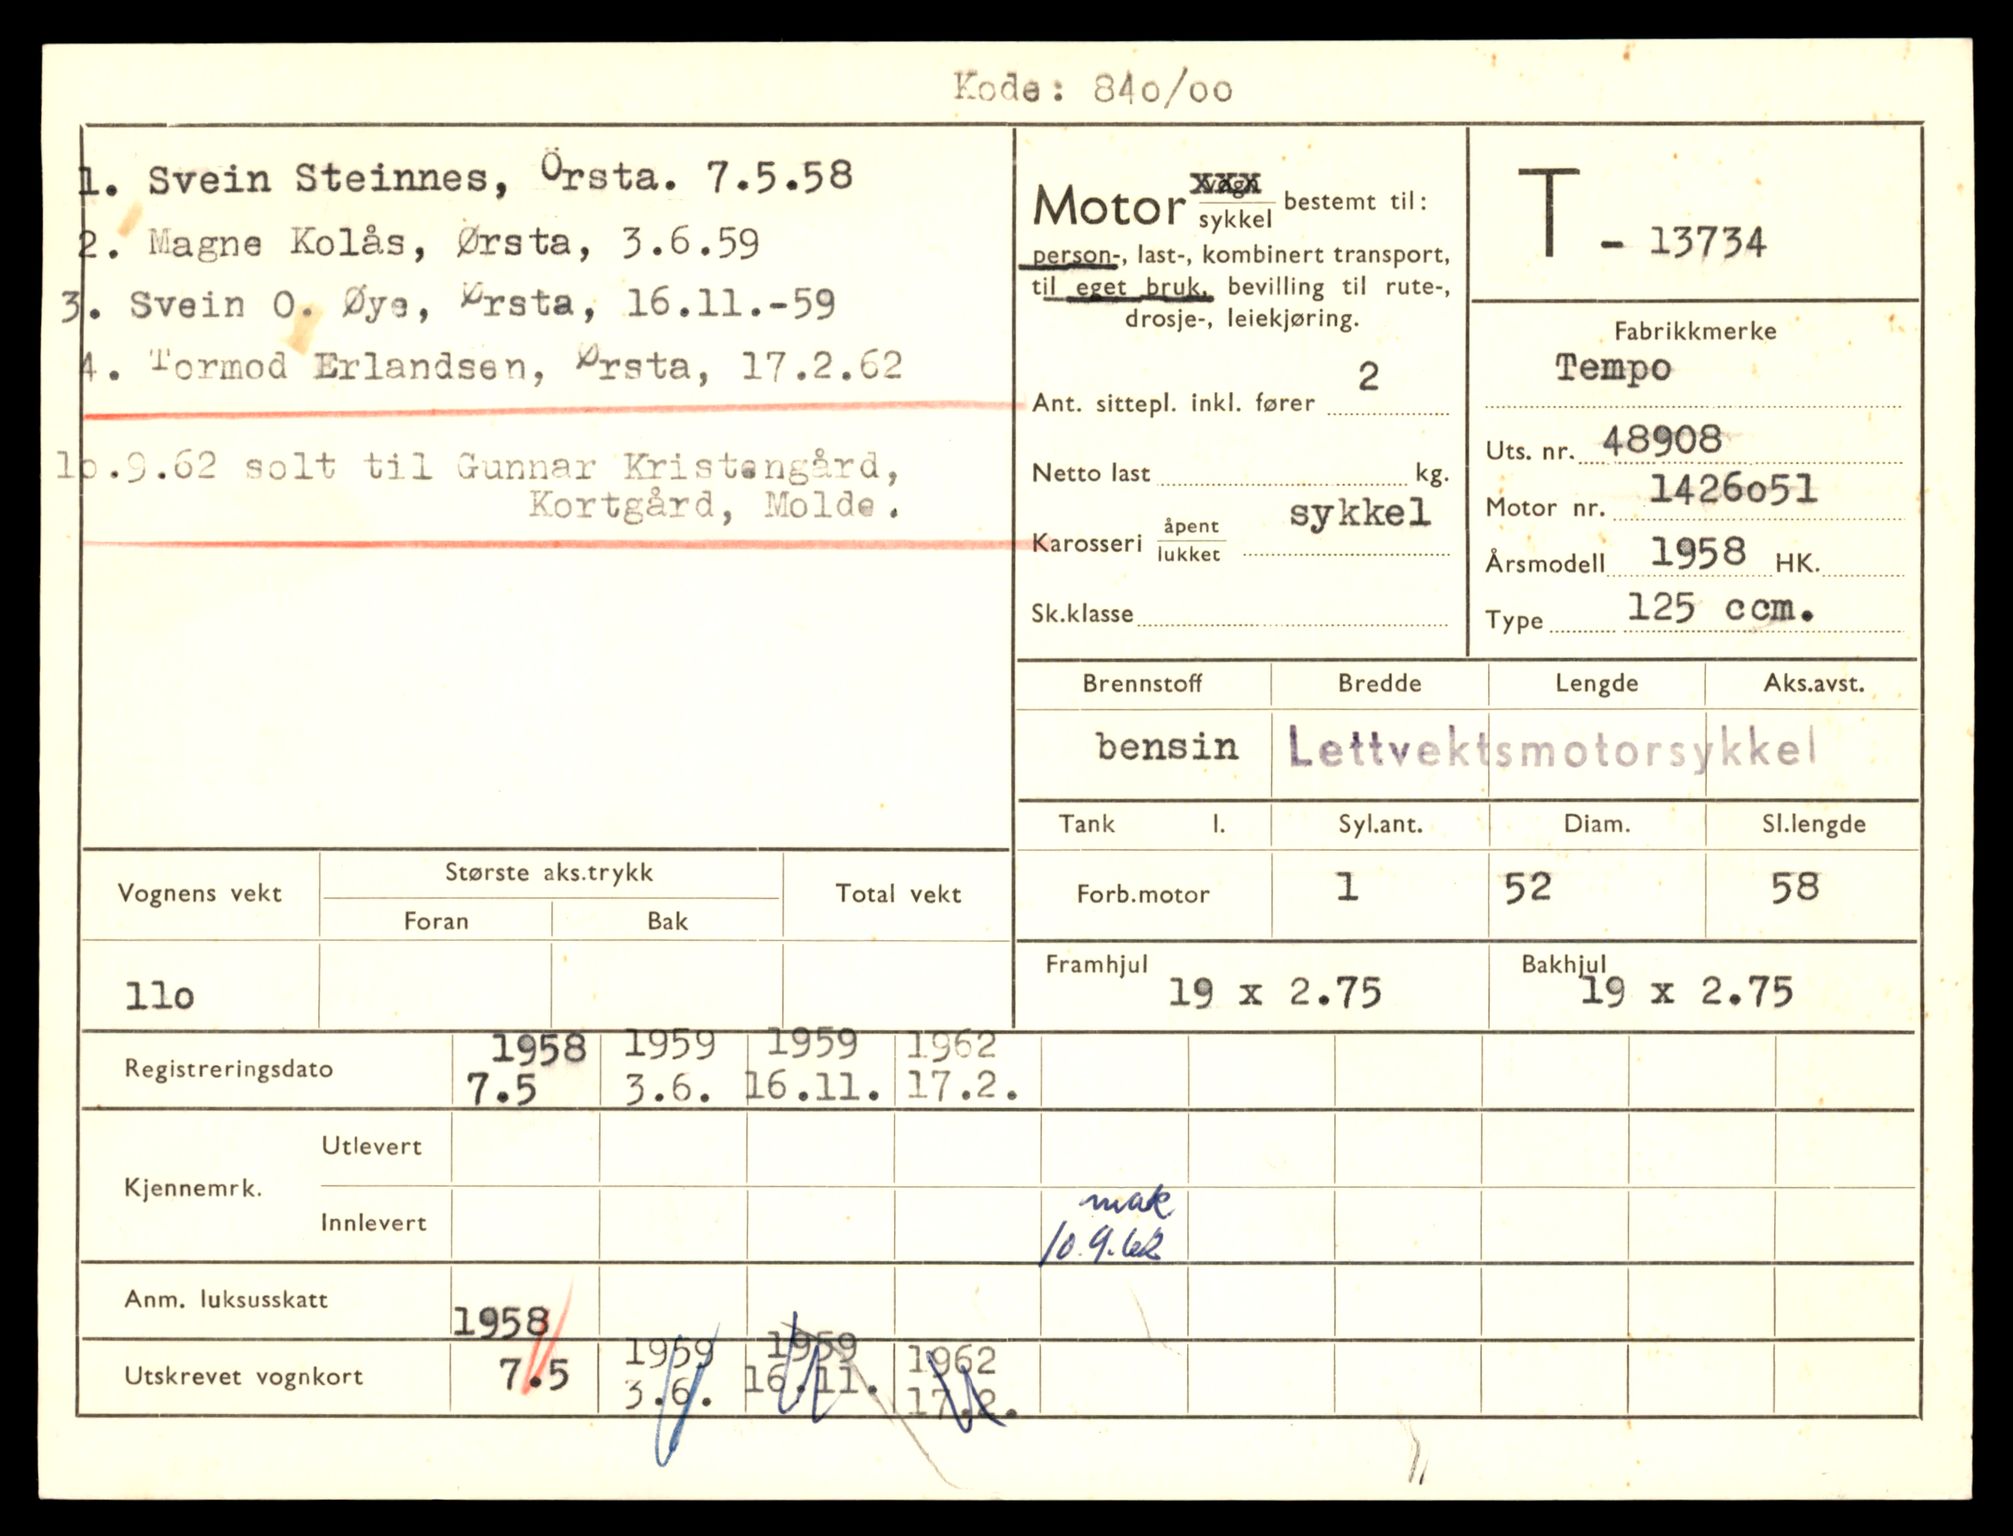 Kode: 840/00
1. Svein Steinnes, Örsta. 7.5.58
2. Magne Kolås, Ørsta, 3.6.59
3. Svein O. Øye, Ørsta, 16.11.-59
4. Tormod Erlandsen, Ørsta, 17.2.62
10.9.62 solt til Gunnar Kristengård,
Kortgård, Molde.
Motor vogn xxx
sykkel bestemt til:
person-, last-, kombinert transport,
til eget bruk, bevilling til rute-,
drosje-, leiekjøring.
Ant. sittepl. inkl. fører 2
Netto last kg.
Karosseri åpent lukket sykkel
Sk.klasse
T - 13734
Fabrikkmerke
Tempo
Uts. nr. 48908
Motor nr. 1426o51
Årsmodell 1958 HK.
Type 125 ccm.
Brennstoff Bredde Lengde Aks.avst.
bensin Lettvektsmotorsykkel
Tank l. Syl.ant. Diam. Sl.lengde
Forb.motor 1 52 58
Framhjul 19 x 2.75 Bakhjul 19 x 2.75
Vognens vekt Største aks.trykk Total vekt
Foran Bak
11o
Registreringsdato 1958 1959 1959 1962
7.5 3.6. 16.11. 17.2.
Kjennemrk.
Utlevert
Innlevert mak
10.9.62
Anm. luksusskatt
1958
Utskrevet vognkort 7.5 1959 1959 1962
3.6. 16.11. 17.2.